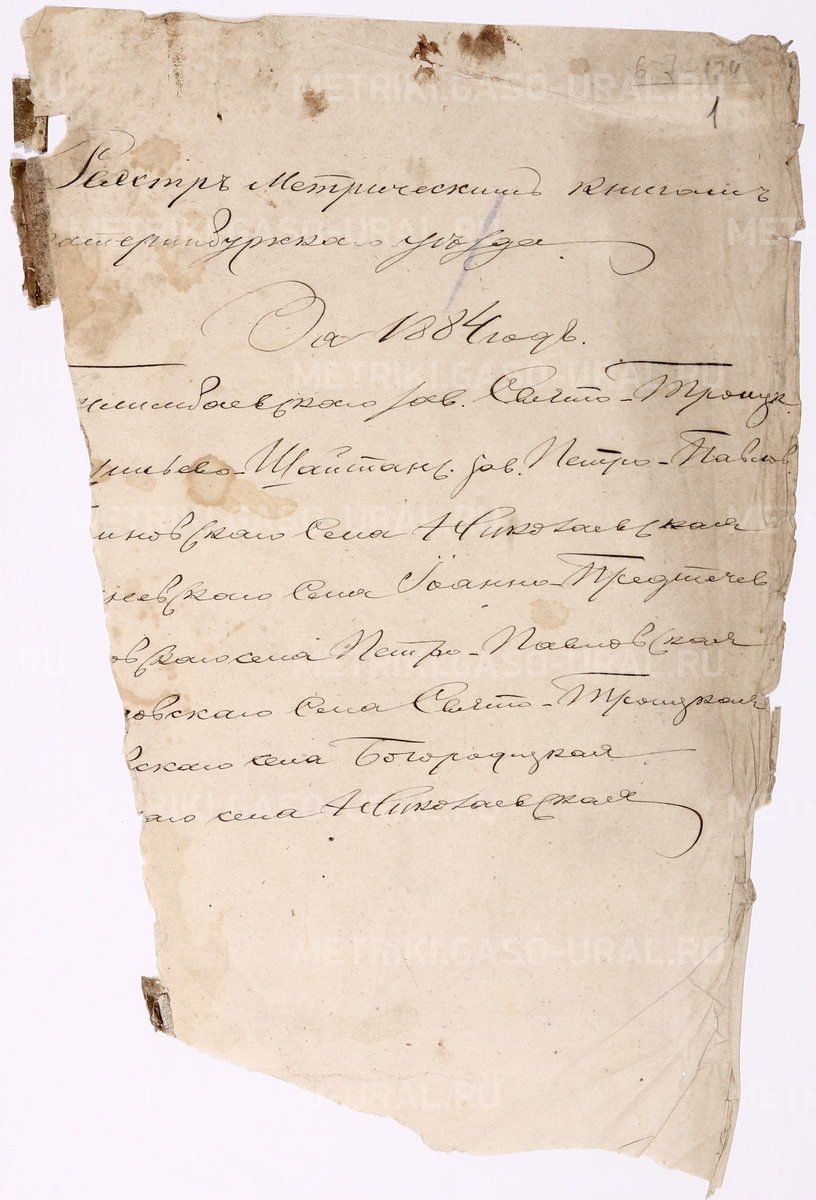 67 134
1
Реестръ Метрическимъ книгамъ
катеринбургскаго уѣзда
За 1884 годъ.
илимбаевскаго зав. Свято-Троицк.
ильево-Шайтан. зав. Петро-Павлов.
иновскаго села Николаевская
невскаго села Іоанно-Предтечев
овскаго села Петро-Павловская
овскаго села Свято-Троицкая
скаго села Богородицкая
аго села Николаевская
METRIKI.GASO-URAL.RU